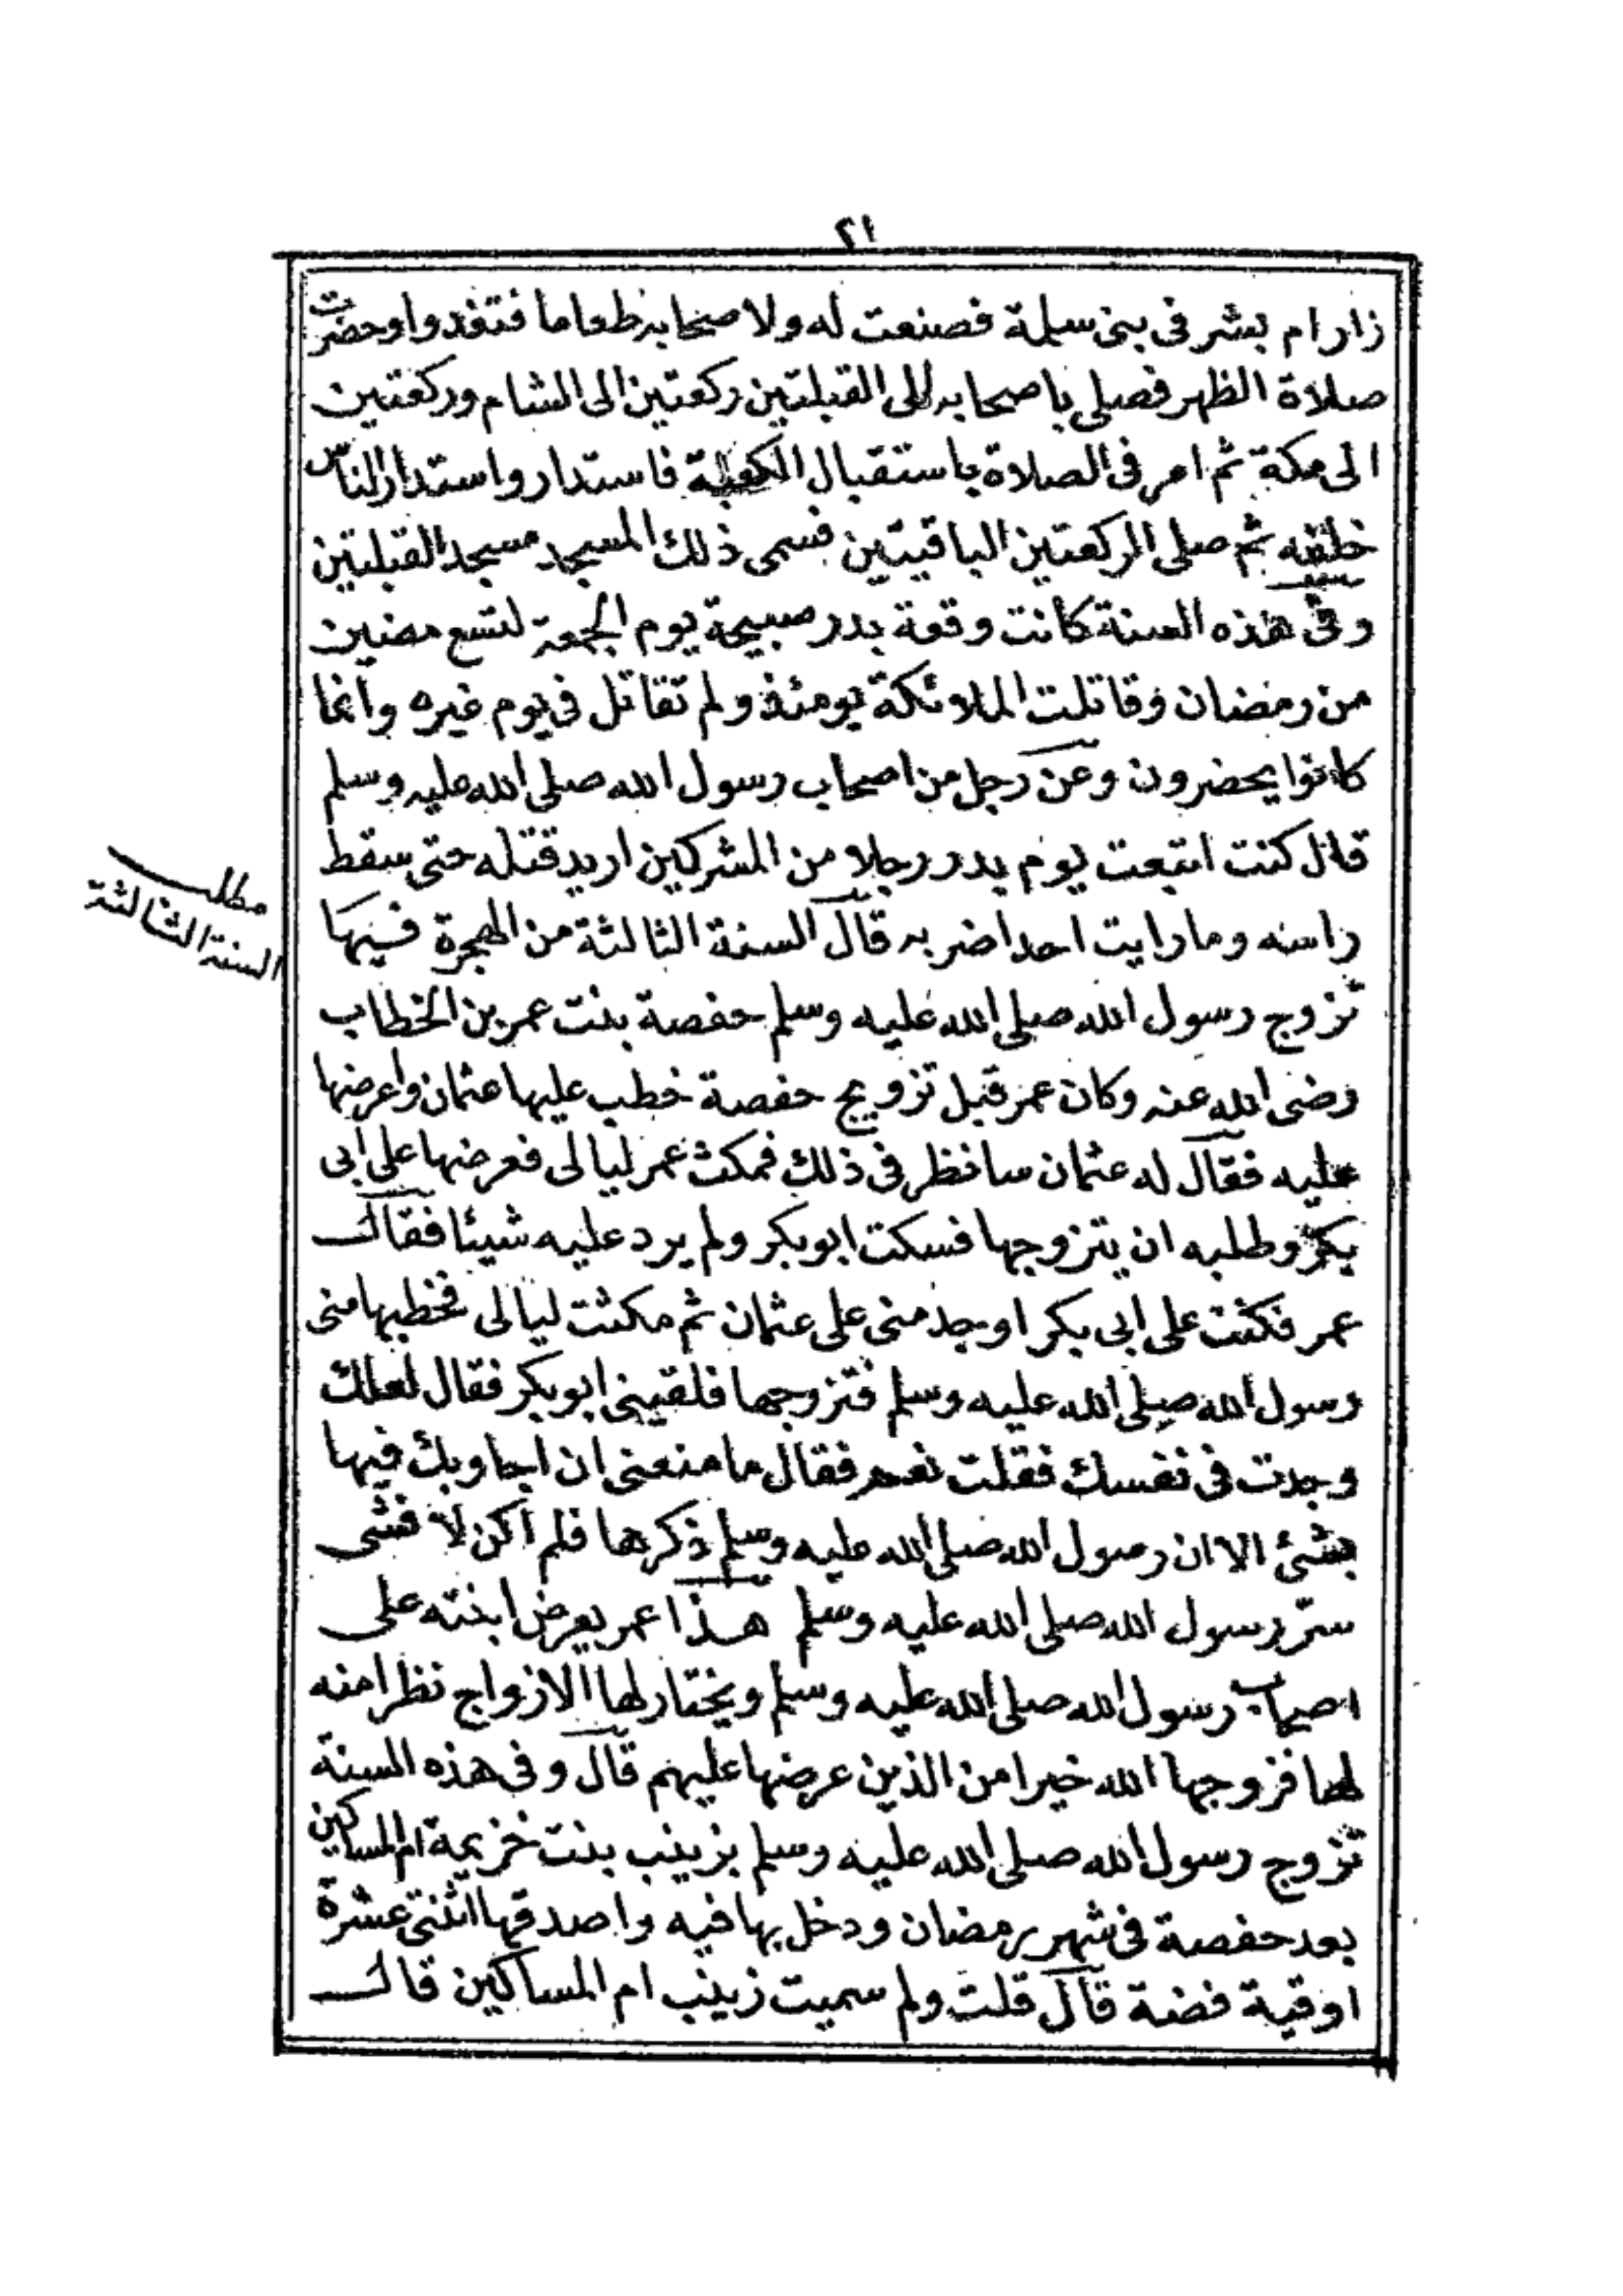 ٢١
زار ام بشر فى بنى سلمة فصنعت له ولاصحابه طعاما فتغدوا وحضرت
صلاة الظهر فصلى باصحابه الى القبلتين ركعتين الى الشام وركعتين
الى مكة ثم امر فى الصلاة باستقبال الكعبة فاستدار واستدار الناس
خلفه ثم صلى الركعتين الباقيتين فسمى ذلك المسجد مسجد القبلتين
وفى هذه السنة كانت وقعة بدر صبيحة يوم الجمعة لتسع مضين
من رمضان وقاتلت الملائكة يومئذ ولم تقاتل فى يوم غيره وانما
كانوا يحضرون وعن رجل من اصحاب رسول الله صلى الله عليه وسلم
قال كنت اتبعت يوم بدر رجلا من المشركين اريد قتله حتى سقط
راسه وما رايت احدا ضربه قال السنة الثالثة من الهجرة فيها
مطلب
السنة الثالثة
تزوج رسول الله صلى الله عليه وسلم حفصة بنت عمر بن الخطاب
رضى الله عنه وكان عمر قبل تزويج حفصة خطب عليها عثمان واعرضها
عليه فقال له عثمان سانظر فى ذلك فمكث عمر ليالى فعرضها على ابى
بكر وطلبه ان يتزوجها فسكت ابو بكر ولم يرد عليه شيئا فقال
عمر فكنت على ابى بكر اوجد منى على عثمان ثم مكثت ليالى فخطبها منى
رسول الله صلى الله عليه وسلم فتزوجها فلقينى ابو بكر فقال لعلك
وجدت فى نفسك فقلت نعم فقال ما منعنى ان اجاوبك فيها
بشئ الا ان رسول الله صلى الله عليه وسلم ذكرها فلم اكن لا فشى
سرّ رسول الله صلى الله عليه وسلم هذا عمر يعرض ابنته على
اصحاب رسول الله صلى الله عليه وسلم ويختار لها الازواج نظرا منه
لها فزوجها الله خيرا من الذين عرضها عليهم قال وفى هذه السنة
تزوج رسول الله صلى الله عليه وسلم بزينب بنت خزيمة ام المساكين
بعد حفصة فى شهر رمضان ودخل بها فيه واصدقها اثنتى عشرة
اوقية فضة قال قلت ولم سميت زينب ام المساكين قال